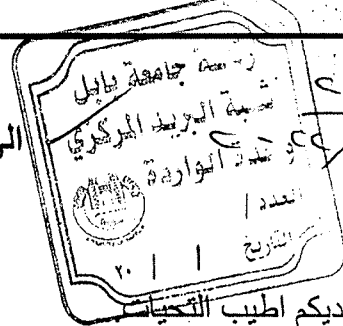 رئاسة جامعة بابل
شعبة البريد المركزي
وحدة الواردة
العدد /
التاريخ / / ٢٠
ديكم اطيب التحيات